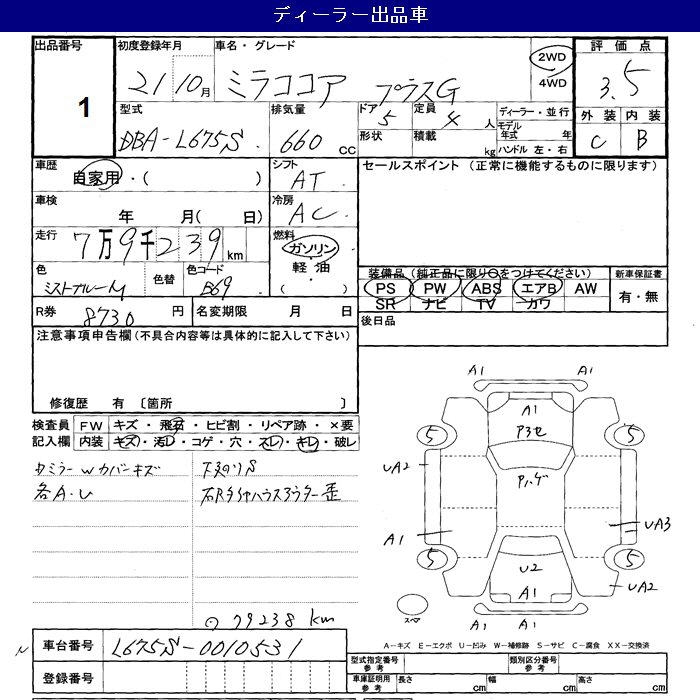 ディーラー出品車
出品番号 初度登録年月 車名・グレード 評価点
1
21 10月 ミラココア プラスG
2WD
4WD
3.5
型式 排気量 ドア 定員 ディーラー・並行 外装 内装
DBA-L675S 660 CC 5 4 人 モデル年式 年 C B
形状 積載 kg ハンドル 左・右
車歴 自家用・( ) シフト AT
セールスポイント (正常に機能するものに限ります)
車検 年 月( 日) 冷房 AC
走行 7万9千239km 燃料 ガソリン・軽油・( )
色 ミストブルーM 色替 色コード B69
装備品(純正品に限り○をつけてください) 新車保証書
PS PW ABS エアB AW 有・無
SR ナビ TV カワ
R券 8730 円 名変期限 月 日
後日品
注意事項申告欄(不具合内容等は具体的に記入して下さい)
修復歴 有 〔箇所 〕
検査員記入欄 FW キズ・飛石・ヒビ割・リペア跡・×要
内装 キズ・汚レ・コゲ・穴・スレ・キレ・破レ
カバーキズ
各A・U
79238 km
A1 A1
A1
5 5
UA2
A1
UA3
5 5
U2
A1
UA2
A1 A1
スペア
車台番号 L675S-0010531
登録番号
A－キズ E－エクボ U－凹み W－補修跡 S－サビ C－腐食 XX－交換済
型式指定番号 参考 類別区分番号 参考
車庫証明用 参考 長さ cm 幅 cm 高さ cm